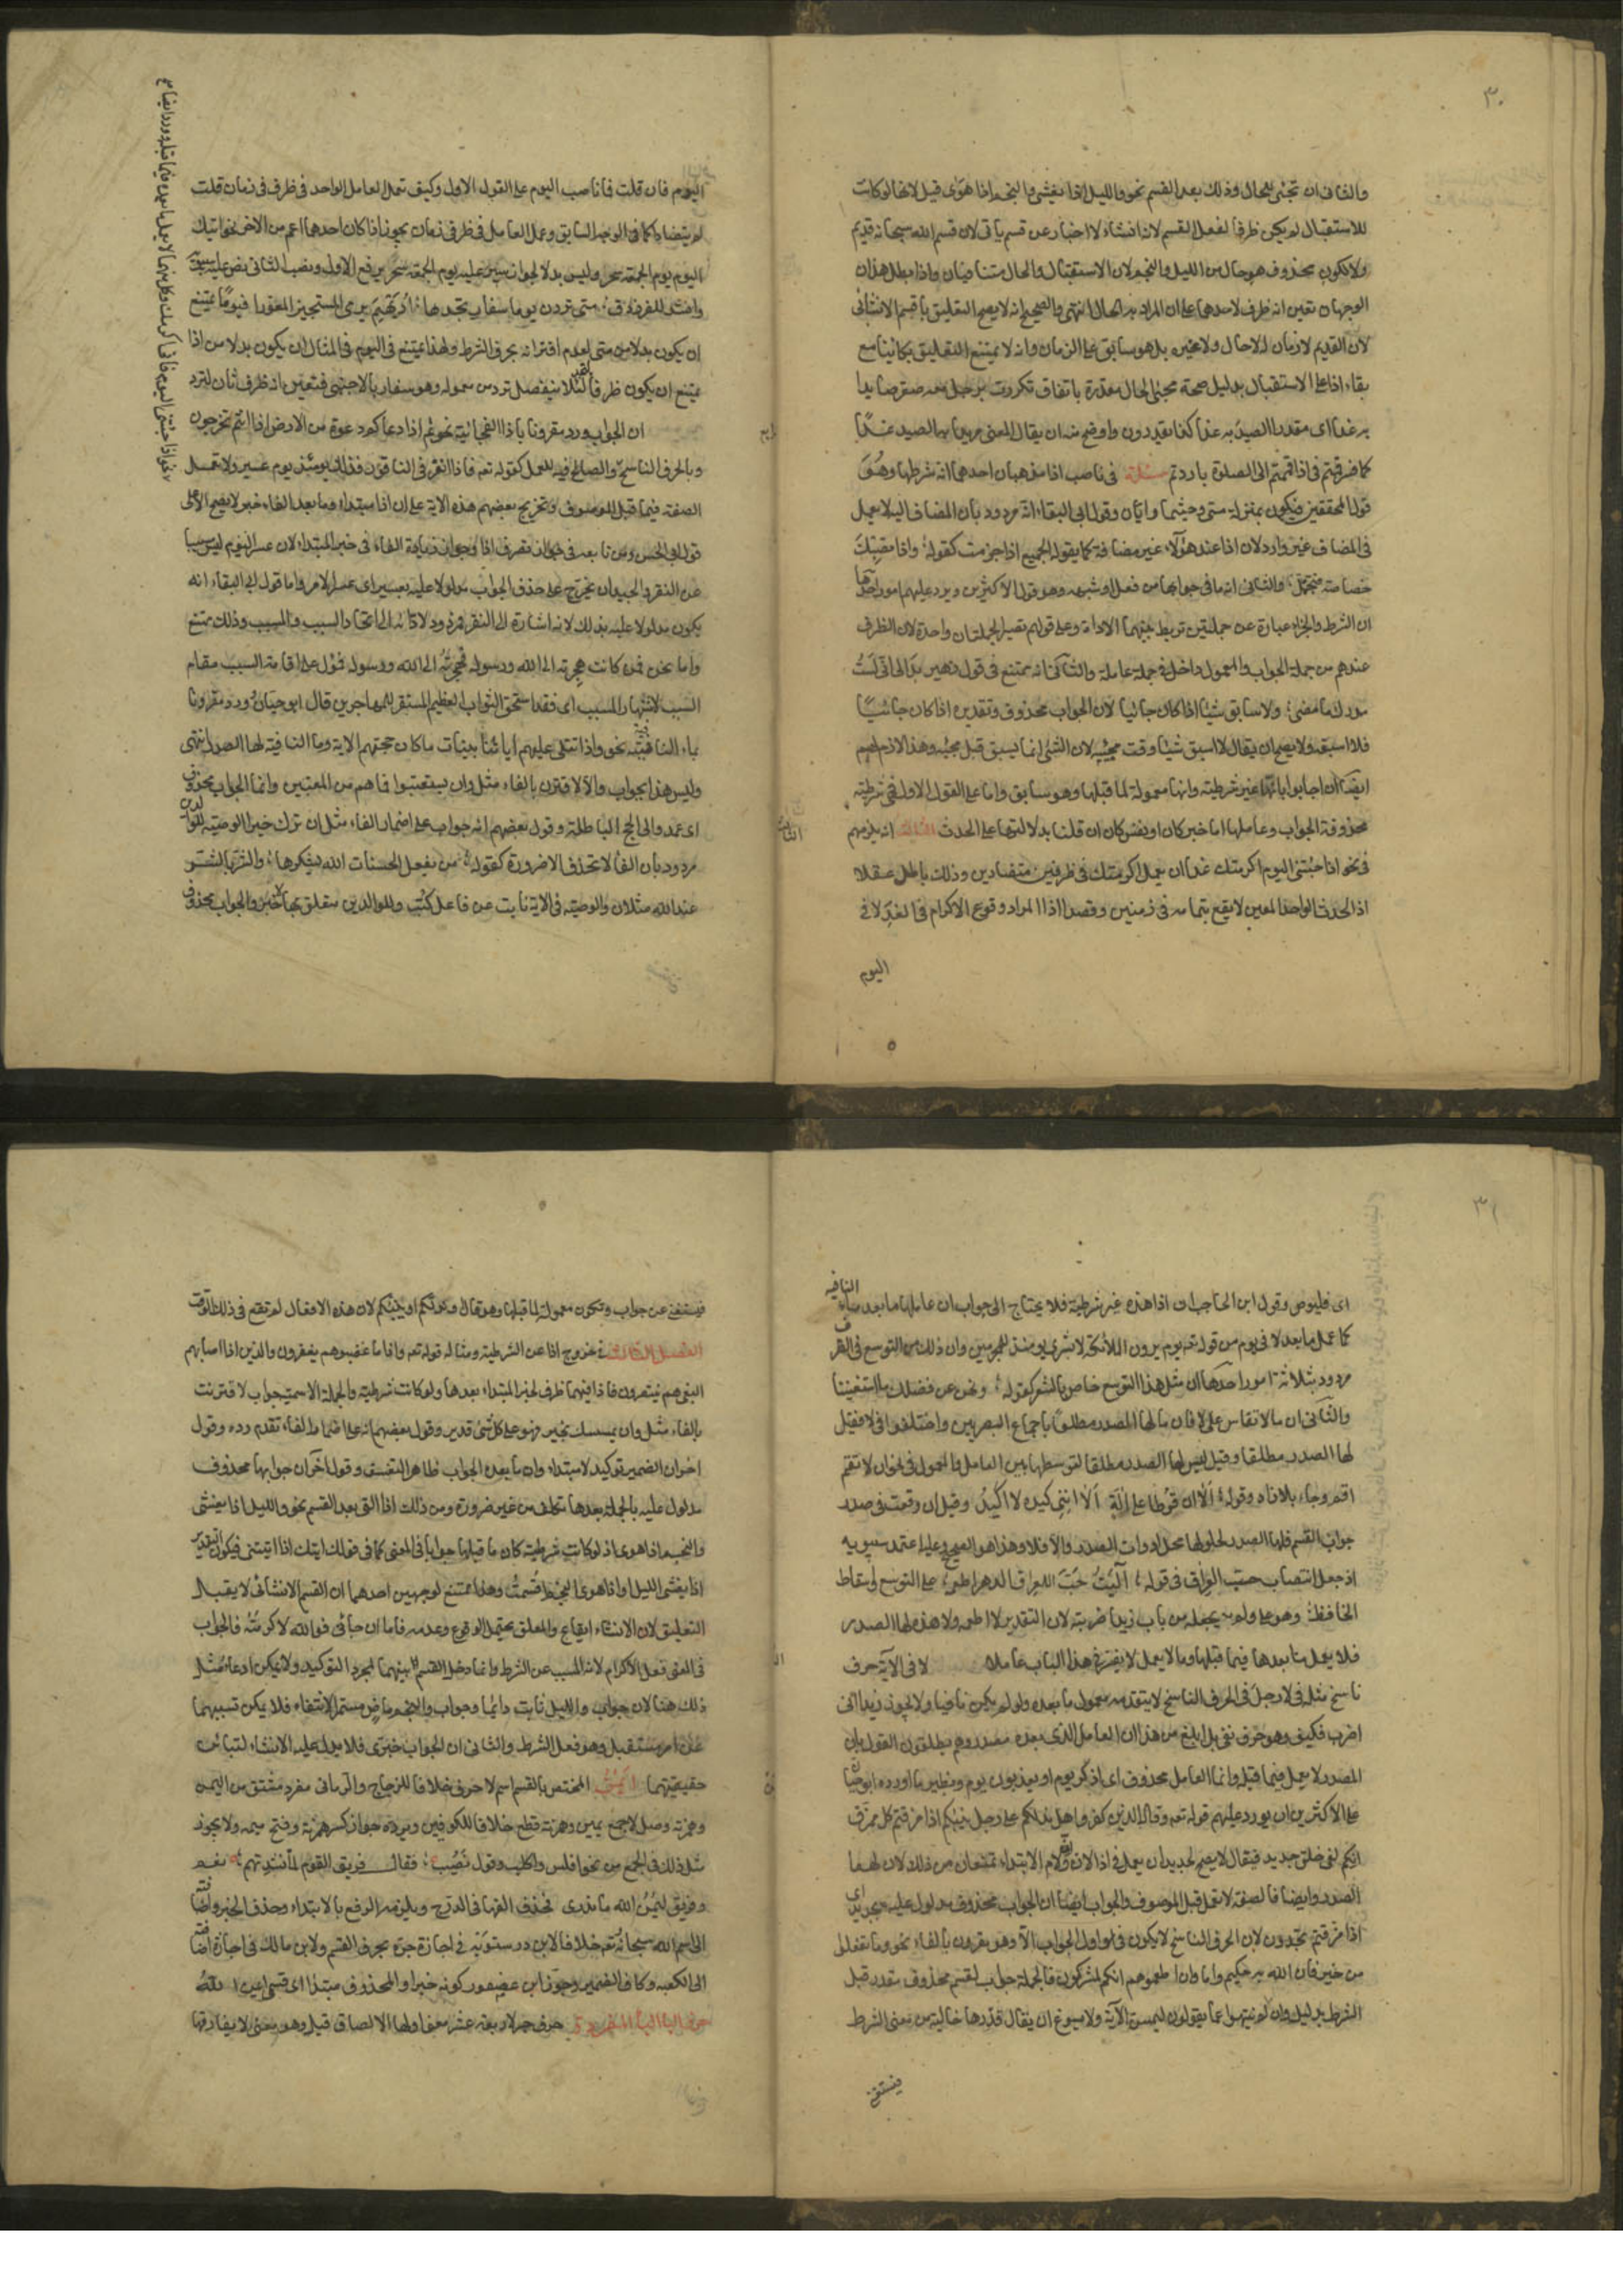 ٣٠
والثانى ان تجئى للحال وذلك بعد القسم نحو والليل اذا يغشى والنجم اذا هوى قيل لانها لو كانت
للاستقبال لم يكن ظرفا لفعل القسم لانه انشاء لا اخبار عن قسم يأتى لان قسم الله سبحانه قديم
ولا لكون محذوف هو حال من الليل والنجم لان الاستقبال والحال متنافيان واذا بطل هذان
الوجهان تعين انه ظرف لاحدهما على ان المراد به الحال انتهى والصحيح انه لا يصح التعليق باقسم الانشائى
لان القديم لا زمان له لا حال ولا غيره بل هو سابق على الزمان وانه لا يمتنع التعليق بكائنا مع
بقاء اذا على الاستقبال بدليل صحة مجيئ الحال مقدرة باتفاق كمررت برجل معه صقر صايدا
به غدا اى مقدرا الصيد به غدا كذا يقدرون واوضح منه ان يقال المعنى مريدا به الصيد غدًا
كما فسر قمتم فى اذا قمتم الى الصلوة باردتم مسئلة فى ناصب اذا مذهبان احدهما انه شرطها وهُوَ
قول المحققين فيكون بمنزلة متى وحيثما وايان وقول ابى البقاء انه مردود بان المضاف اليه لا يعمل
فى المضاف غير وارد لان اذا عند هؤلاء غير مضافة كما يقوله الجميع اذا جزمت كقوله؛ واذا تصبك
خصاصة فتجمل؛ والثانى انه ما فى جوابها من فعل او شبهه وهو قول الاكثرين ويرد عليهم امور احدها
ان الشرط والجزاء عبارة عن جملتين تربط بينهما الاداة وعلى قولهم تصير الجملتان واحدة لان الظرف
عندهم من جملة الجواب والمعمول داخل فى جملة عامله والثانى انه يمتنع فى قول زهير بدا لى انى لَستُ
مدرك ما مضى؛ ولا سابق شيئا اذا كان جائيا لان الجواب محذوف وتقديره اذا كان جائيًا
فلا اسبقه ولا يصح ان يقال لا اسبق شيئا وقت مجيئه لان الشئ انما يسبق قبل مجيئه وهذا لازم لهم
ايضًا ان اجابوا بانها غير شرطية وانها معمولة لما قبلها وهو سابق واما على القول الاول فهى شرطية
محذوفة الجواب وعاملها اما خبر كان او نفس كان ان قلنا بدلالتها على الحدث الثالث انه يلزمهم
فى نحو اذا جئتنى اليوم اكرمتك غدا ان يعمل اكرمتك فى ظرفين متضادين وذلك باطل عقلا
اذ الحدث الواحد المعين لا يقع بتمامه فى زمنين وقصدا اذا المراد وقوع الاكرام فى الغد لا فى
اليوم
اليوم فان قلت فما ناصب اليوم على القول الاول وكيف تعمل العامل الواحد فى ظرفى زمان قلت
لم يتضادا كما فى الوجه السابق وعمل العامل فى ظرفى زمان يجوز اذا كان احدهما اعم من الاخر نحو آتيك
اليوم يوم الجمعة سحر وليس بدلا لجواز سير عليه يوم الجمعة سحر برفع الاول ونصب الثانى نص عليه سيبويه
وانشد للفرزدق؛ متى تردن يوما سفار تجد بها؛ اديهم يرمى المستجيز المعورا فيوما يمتنع
ان يكون بدلا من متى لعدم اقترانه بحرف الشرط ولهذا يمتنع فى اليوم فى المثال ان يكون بدلا من اذا
يمتنع ان يكون ظرفا لتجد لئلا ينفصل تردن من معموله وهو سفار بالاجنبى فتعين انه ظرف ثان لترد
ان الجواب ورد مقرونا باذا الفجائية نحو ثم اذا دعاكم دعوة من الارض اذا انتم تخرجون
وبالحرف الناسخ والصالح فيه للعمل كقوله تعه فاذا نقر فى الناقور فذلك يومئذ يوم عسير ولا تعمل
الصفة فيما قبل الموصوف وتخريج بعضهم هذه الاية على ان اذا مبتداء وما بعد الفاء خبر لا يصح الا على
قول ابى الحسن ومن تابعه فى جواز تصرف اذا وجواز زيادة الفاء فى خبر المبتداء لان عسر اليوم ليس مسببا
عن النقر والجيد ان يخرج على حذف الجواب مدلولا عليه بعسير اى عسر الامر واما قول ابى البقاء انه
يكون مدلولا عليه بذلك لانه اشارة الى النقر فمردود لادائه الى اتحاد السبب والمسبب وذلك ممتنع
واما نحو فمن كانت هجرته الى الله ورسوله فهجرته الى الله ورسوله فمؤل على اقامة السبب مقام
السبب لاشتهار المسبب اى فقد استحق الثواب العظيم المستقر للمهاجرين قال ابو حيان ورد مقرونا
بماء النافية نحو واذا تتلى عليهم آياتنا بينات ما كان حجتهم الاية وما النافية لها الصدر انتهى
وليس هذا بجواب والا لاقترن بالفاء مثل وان يستعتبوا فما هم من المعتبين وانما الجواب محذوف
اى عمدوا الى الحجج الباطلة وقول بعضهم انه جواب على اضمار الفاء مثل ان ترك خيرا الوصية للوالدين
مردود بان الفاء لا تحذف الا ضرورة كقوله؛ من يفعل الحسنات الله يشكرها؛ والشر بالشر
عند الله مثلان والوصية فى الاية نايبة عن فاعل كُتِب وللوالدين متعلق بها لا خبر والجواب محذوف
٣١
اى فليوص وقول ابن الحاجب ان اذا هذه غير شرطية فلا يحتاج الى جواب ان عاملها ما بعد ما النافية
كما عمل ما بعد لا فى يوم من قوله تعه يوم يرون الملائكة لا بشرى يومئذ للمجرمين وان ذلك من التوسع فى الظرف
مردود بثلاثة امور احدها ان مثل هذا التوسع خاص بالشعر كقوله؛ ونحن عن فضلك ما استغنينا
والثانى ان ما لا تقاس على لا فان ما لها الصدر مطلقًا باجماع البصريين واختلفوا فى لا فقيل
لها الصدر مطلقا وقيل ليس لها الصدر مطلقا لتوسطها بين العامل والمعمول فى نحو ان لا تقم
اقم وجاء بلا زاد وقوله؛ اَلا ان قُرطًا على آلَةٍ اَلا اننى كيده لا اَكيدُ وقيل ان وقعت فى صدر
جواب القسم فلها الصدر لحلولها محل ادوات الصدر والا فلا وهذا هو الصحيح وعليه اعتمد سيبويه
اذ جعل انتصاب حب العراق فى قوله؛ آليتُ حَبَّ العراق الدهر اطعمه؛ على التوسع واسقاط
الخافض وهو على ولم يجعله من باب زيدا ضربته لان التقدير لا اطعمه ولا هذه لها الصدر
فلا يعمل ما بعدها فيما قبلها وما لا يعمل لا يفسر فى هذا الباب عاملا لا فى الآية حرف
ناسخ مثله فى لا رجل فى الحرف الناسخ لا يتقدمه معمول ما بعده ولو لم يكن نافيا ولا يجوز زيدا انى
اضرب فكيف وهو حرف نفى بل ابلغ من هذا ان العامل الذى بعده مصدر وهم يطلقون القول بان
المصدر لا يعمل فيما قبله وانما العامل محذوف اى اذكر يوم او يعذبون يوم ونظير ما اورده ابو حيان
على الاكثرين ان يورد عليهم قوله تعه وقال الذين كفروا هل ندلكم على رجل ينبئكم اذا مزقتم كل ممزق
انكم لفى خلق جديد فيقال لا يصح لجديد ان يعمل فى اذا لان ولام الابتداء تمنعان من ذلك لان لهما
الصدر وايضا فالصفة لا تعمل قبل الموصوف والجواب ايضا ان الجواب محذوف مدلول عليه بجديد اى
اذا مزقتم تجددون لان الحرف الناسخ لا يكون فى اول الجواب الا وهو مقرون بالفاء نحو وما تفعلوا
من خير فان الله به عليم واما وان اطعتموهم انكم لمشركون فالجملة جواب لقسم محذوف مقدر قبل
الشرط بدليل وان لم ينتهوا عما يقولون ليمسن الآية ولا يسوغ ان يقال قدرها خالية من معنى الشرط
فيستغنى
فيستغنى عن جواب وتكون معمولة لما قبلها وهو قال او ندلكم او ينبئكم لان هذه الافعال لم تقع فى ذلك الوقت
الفصل الثالث فى خروج اذا عن الشرطية ومثاله قوله تعه واذا ما غضبوا هم يغفرون والذين اذا اصابهم
البغى هم ينتصرون فاذا فيهما ظرف لخبر المبتداء بعدها ولو كانت شرطية والجملة الاسمية جواب لاقترنت
بالفاء مثل وان يمسسك بخير فهو على كل شئ قدير وقول بعضهم انه على اضمار الفاء تقدم رده وقول
اخر ان الضمير توكيد لا مبتداء وان ما بعده الجواب ظاهر التعسف وقول آخر ان جوابها محذوف
مدلول عليه بالجملة بعدها تكلف من غير ضرورة ومن ذلك اذا التى بعد القسم نحو والليل اذا يغشى
والنجم اذا هوى اذ لو كانت شرطية كان ما قبلها جوابا فى المعنى كما فى قولك اتيك اذا اتيتنى فيكون التقدير
اذا يغشى الليل واذا هوى النجم اقسمتُ وهذا ممتنع لوجهين احدهما ان القسم الانشائى لا يقبل
التعليق لان الانشاء ايقاع والمعلق يحتمل الوقوع وعدمه فاما ان جائنى فوالله لاكرمنه فالجواب
فى المعنى فعل الاكرام لانه المسبب عن الشرط وانما دخل القسم بينهما لمجرد التوكيد ولا يمكن ادعاء مثل
ذلك هنا لان جواب والليل ثابت دائما وجواب والنجم ماض مستمر الانتفاء فلا يمكن تسببهما
عن امر مستقبل وهو فعل الشرط والثانى ان الجواب خبرى فلا يدل عليه الانشاء لتباين
حقيقتهما ايمن المختص بالقسم اسم لا حرف خلافا للزجاج والرمانى مفرد مشتق من اليمن
وهمزته وصل لا جمع يمين وهمزته قطع خلافا للكوفيين ويرده جواز كسر همزته وفتح ميمه ولا يجوز
مثل ذلك فى الجمع من نحو افلس واكلب وقول نصيب؛ فقال فريق القوم لما نشدتهم؛ نعم
وفريق ليمن الله ما ندرى فحذف الفها فى الدرج ويلزمه الرفع بالابتداء وحذف الخبر واضافته
الى اسم الله سبحانه تعه خلافا لابن درستويه فى اجازة جره بحرف القسم ولابن مالك فى اجازة اضافته
الى الكعبه وكاف الضمير وجوز ابن عصفور كونه خبرا والمحذوف مبتدا اى قسمى ايمن الله
حرف البا الباء المفردة حرف جر لاربعة عشر معنى اولها الالصاق قيل وهو معنى لا يفارقها